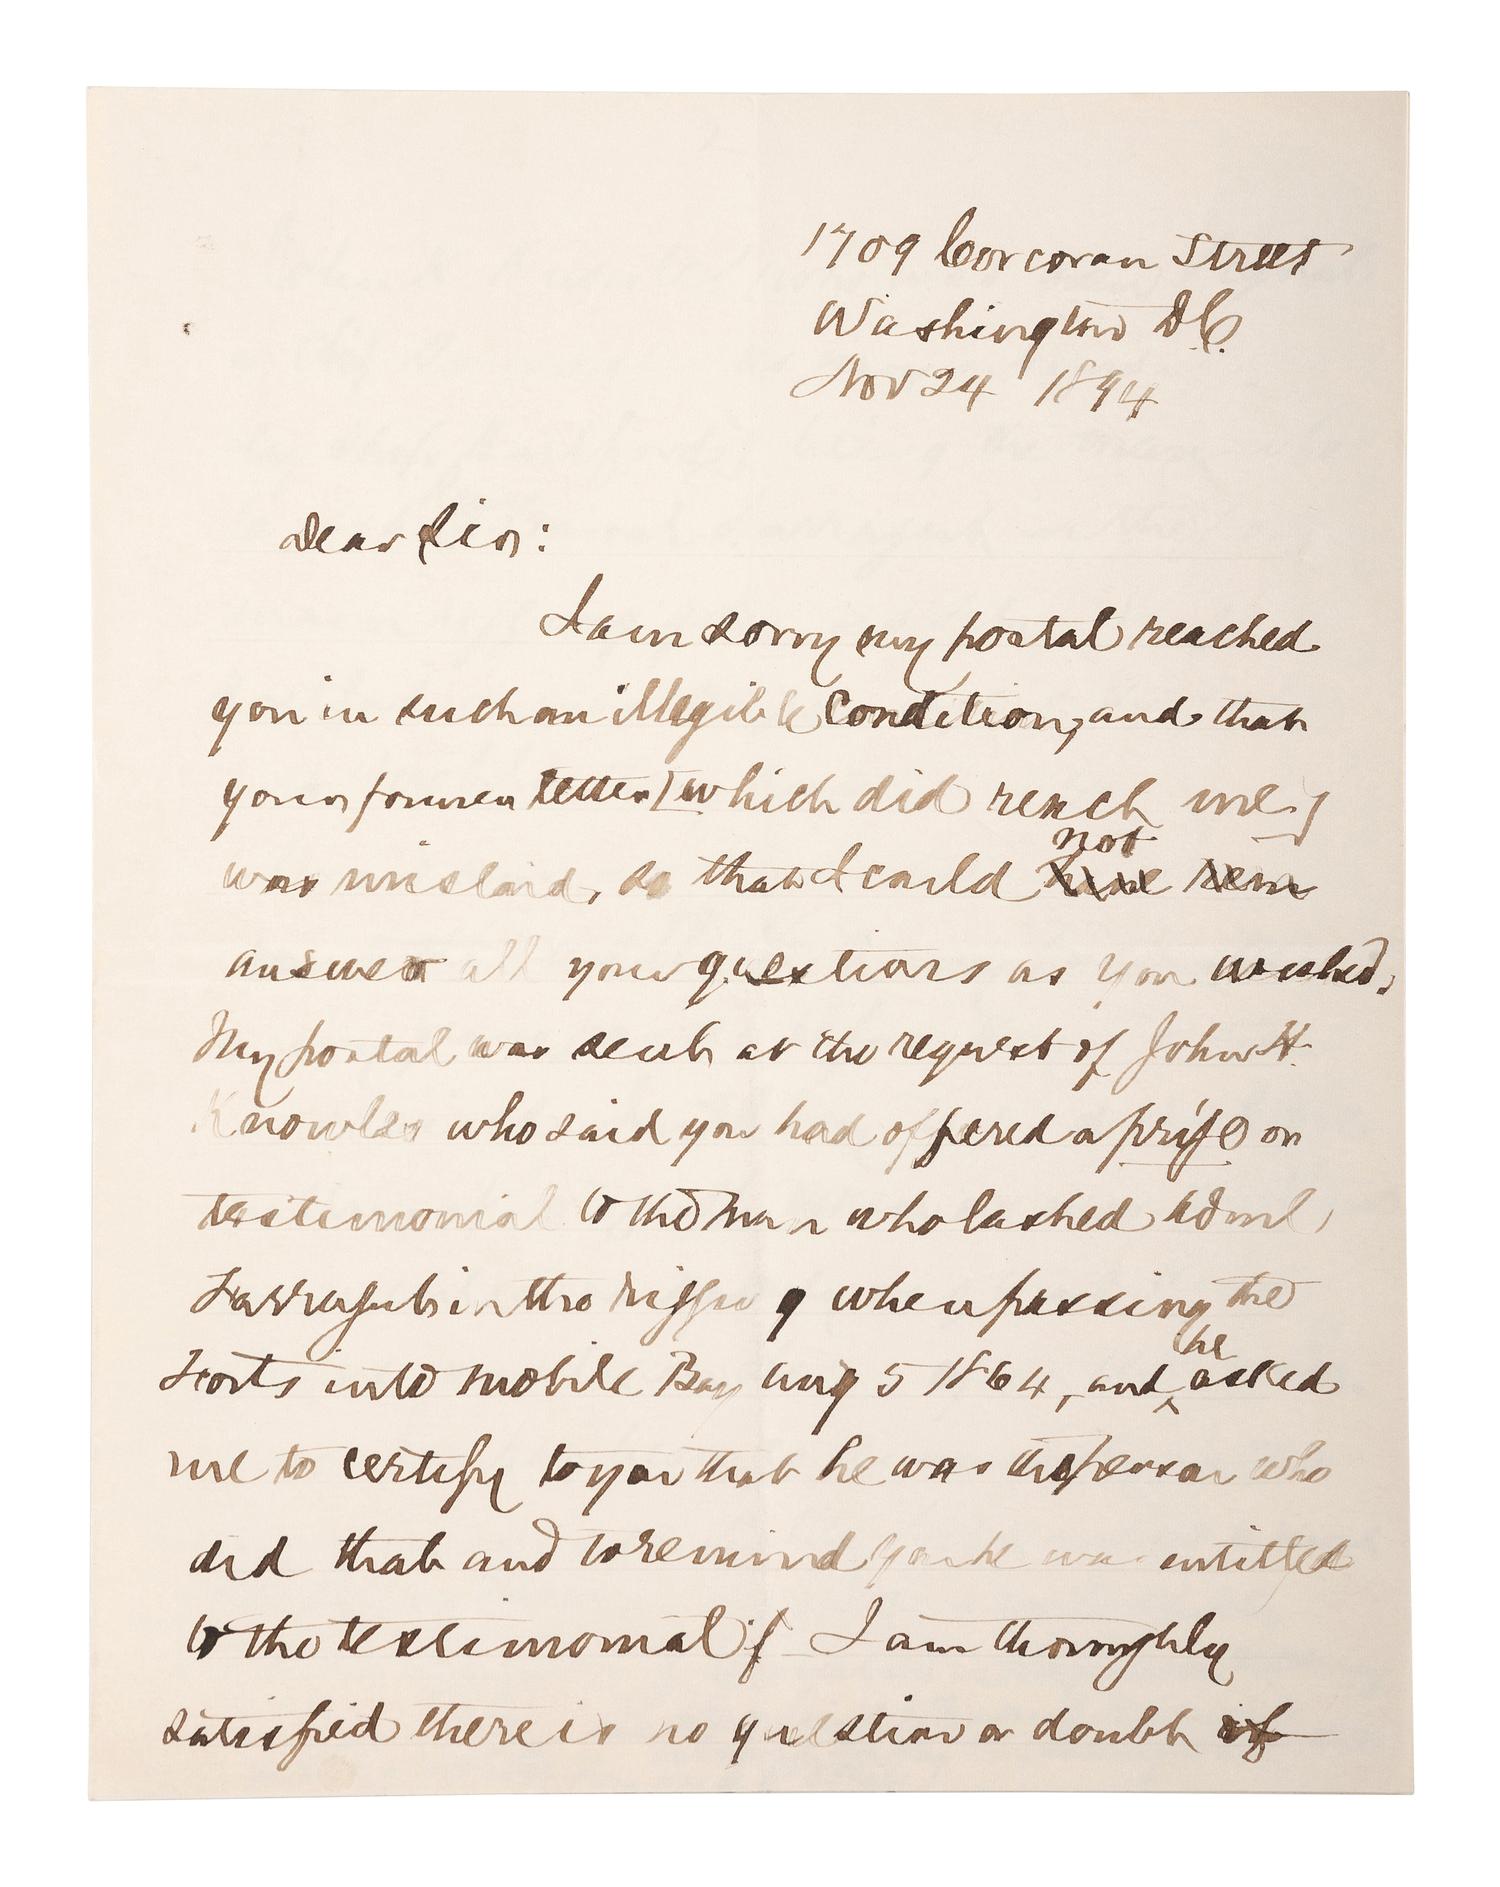 1709 Corcoran Street
Washington D.C.
Nov 24 1894
Dear Sir:
I am sorry my postal reached
you in such an illegible condition, and that
your former letter (which did reach me)
was mislaid, so that I could not
answer all your questions as you wished.
My postal was sent at the request of John H.
Knowles who said you had offered a prize or
testimonial to the man who lashed Adml.
Farragut in the rigging when passing the
Forts into Mobile Bay Aug 5 1864, and he asked
me to certify to you that he was the person who
did that and to remind you he was entitled
to the testimonial if I am thoroughly
satisfied there is no question or doubt of